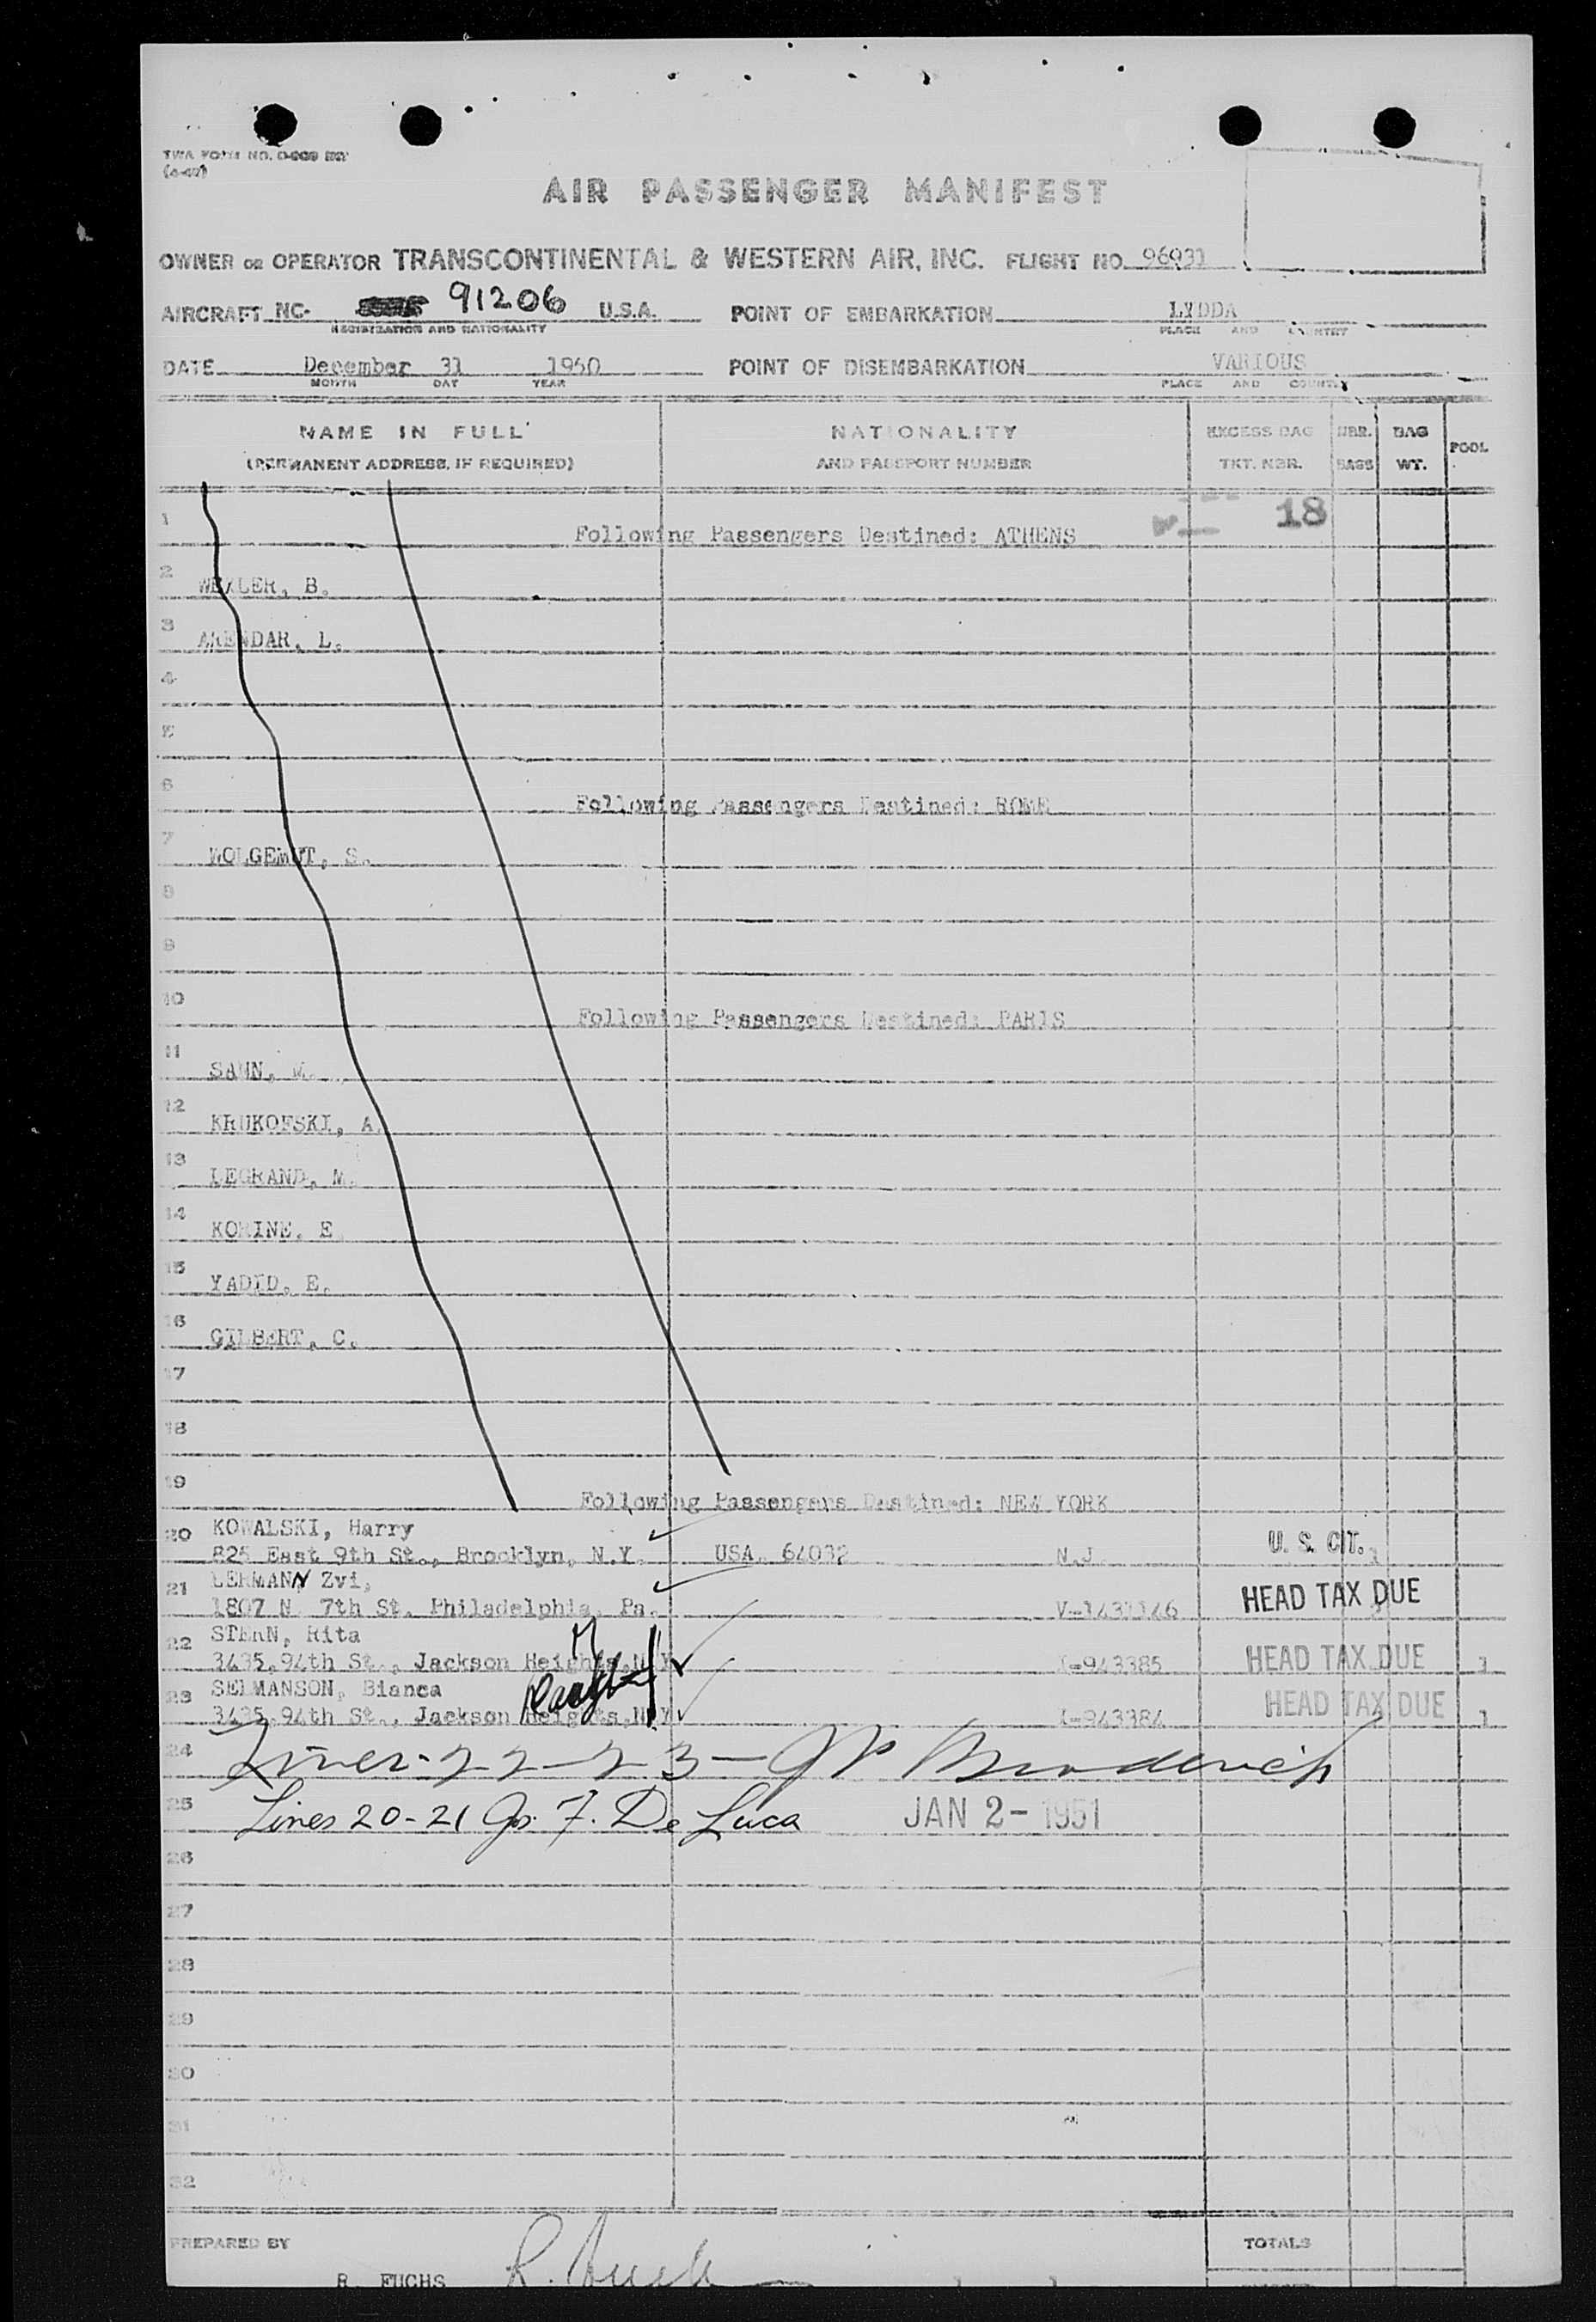 TWA FORM NO. 0-909 INT
(4-49)
AIR PASSENGER MANIFEST
OWNER OR OPERATOR TRANSCONTINENTAL & WESTERN AIR, INC. FLIGHT NO. 96931
AIRCRAFT NC- 91206 U.S.A. POINT OF EMBARKATION LYDDA
REGISTRATION AND NATIONALITY PLACE AND COUNTRY
DATE December 31 1950 POINT OF DISEMBARKATION VARIOUS
MONTH DAY YEAR PLACE AND COUNTRY
NAME IN FULL NATIONALITY EXCESS BAG NBR. BAG POOL
(PERMANENT ADDRESS, IF REQUIRED) AND PASSPORT NUMBER TKT. NBR. BAGS WT.
18
1 Following Passengers Destined: ATHENS
2 WEXLER, B.
3 ARENDAR, L.
4
5
6 Following Passengers Destined: ROME
7 WOLGEMUT, S.
8
9
10 Following Passengers Destined: PARIS
11 SAHN, M.
12 KRUKOFSKI, A.
13 LEGRAND, M.
14 KORINE, E
15 YADID, E.
16 GILBERT, C.
17
18
19 Following Passengers Destined: NEW YORK
20 KOWALSKI, Harry
825 East 9th St., Brooklyn, N.Y. USA 64032 N.J. U. S. CIT.
21 LEHMANN Zvi,
1807 N 7th St. Philadelphia, Pa. V-1431146 HEAD TAX DUE
22 STERN, Rita
3435,94th St., Jackson Heights,N.Y I-943385 HEAD TAX DUE 1
23 SELMANSON, Bianca
3435,94th St., Jackson Heights,N.Y I-943384 HEAD TAX DUE 1
24 Lines 22-23-
25 Lines 20-21 F. De Luca JAN 2- 1951
26
27
28
29
30
31
32
PREPARED BY TOTALS
R. FUCHS R. Fuchs